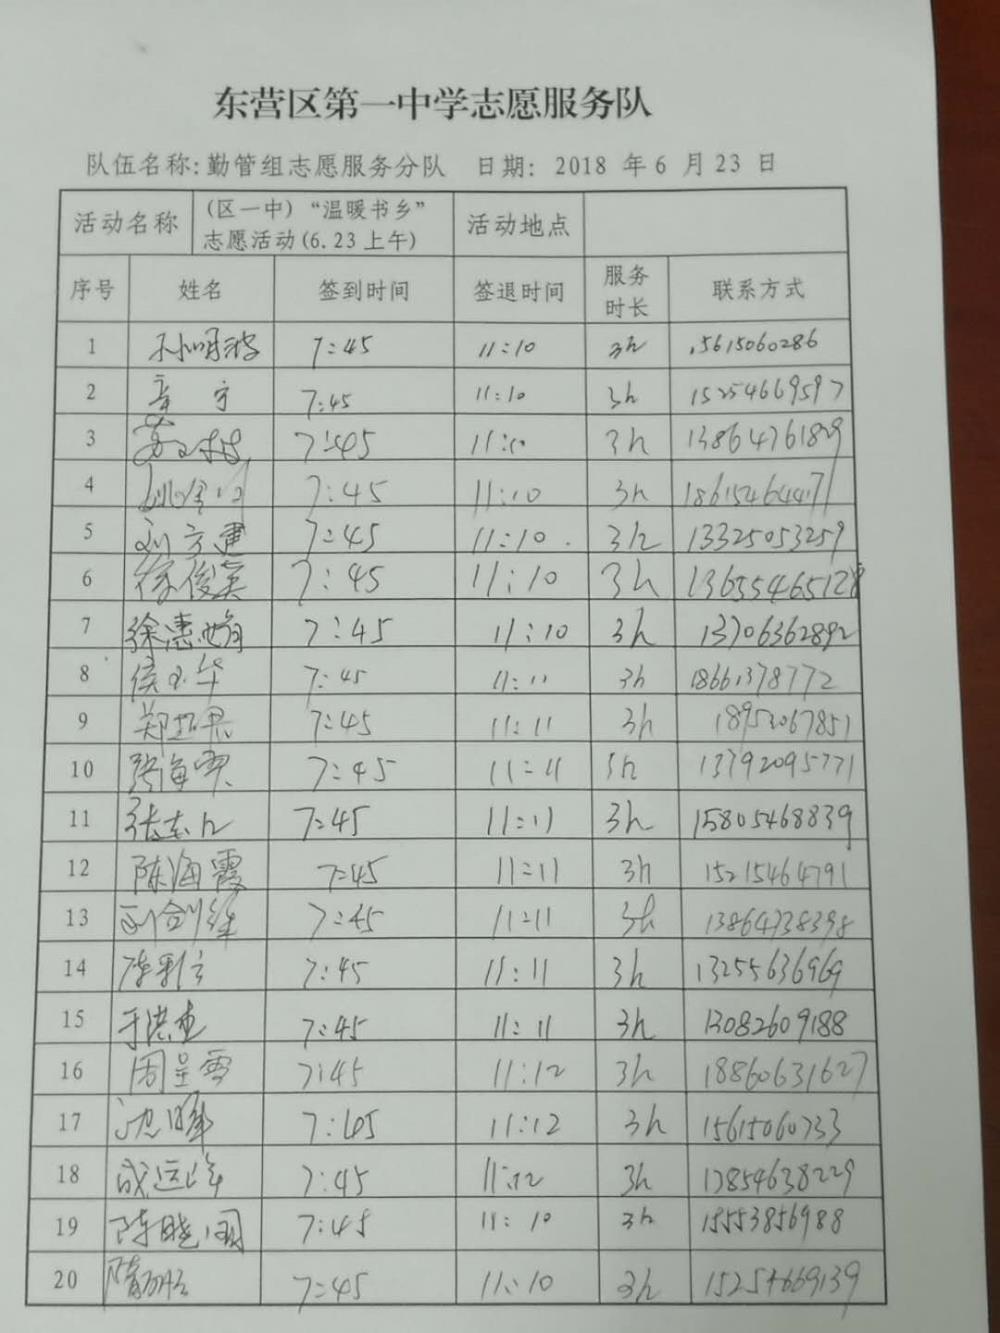 东营区第一中学志愿服务队
队伍名称:勤管组志愿服务分队 日期: 2018 年 6 月 23 日
活动名称 (区一中)“温暖书乡” 活动地点
志愿活动(6.23上午)
序号 姓名 签到时间 签退时间 服务时长 联系方式
1 7:45 11:10 3h 5615060286
2 7:45 11:10 3h 15254669597
3 7:45 11:10 3h 13864761829
4 7:45 11:10 3h
5 刘方建 7:45 11:10 3h 13325053259
6 徐俊英 7:45 11:10 3h 13655465128
7 7:45 11:10 3h 13706362892
8 侯小华 7:45 11:11 3h 18661378772
9 7:45 11:11 3h 18953067851
10 张海霞 7:45 11:11 3h 13792095771
11 7:45 11:11 3h 15805468839
12 陈海霞 7:45 11:11 3h 15215464791
13 7:45 11:11 3h 13864738398
14 7:45 11:11 3h 13255636969
15 7:45 11:11 3h 13082609188
16 周呈雪 7:45 11:12 3h 18860631627
17 7:45 11:12 3h 15615060733
18 7:45 11:12 3h 13854638229
19 7:45 11:10 3h 15553856988
20 7:45 11:10 3h 15254669139